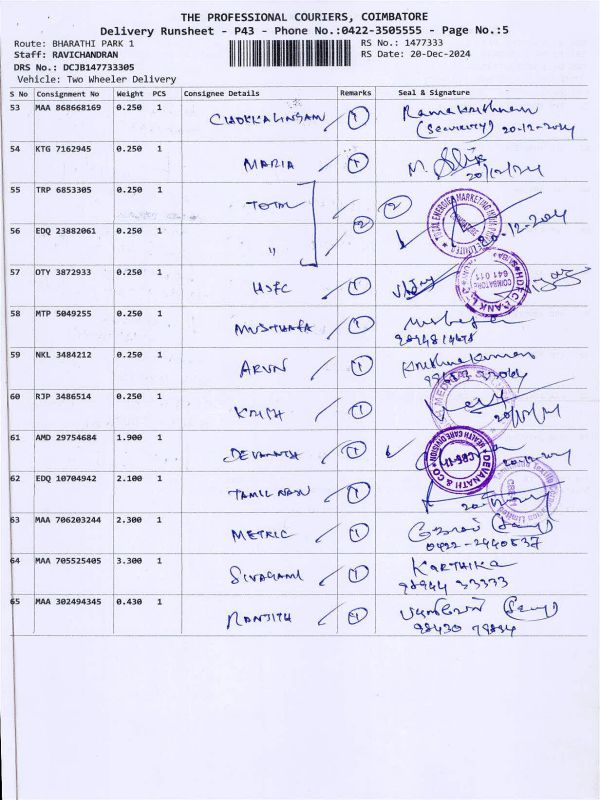 THE PROFESSIONAL COURIERS, COIMBATORE
Delivery Runsheet - P43 - Phone No.:0422-3505555 - Page No.:5
Route: BHARATHI PARK 1
RS No.: 1477333
Staff: RAVICHANDRAN
RS Date: 20-Dec-2024
DRS No.: DCJB147733305
Vehicle: Two Wheeler Delivery
S No Consignment No Weight PCS Consignee Details Remarks Seal & Signature
53 MAA 868668169 0.250 1 CHOKKALINGAM 1 Ramakrishnan
(Security) 20-12-2024
54 KTG 7162945 0.250 1 MARIA 1 M.
20/12/24
55 TRP 6853305 0.250 1 TOTAL 2
56 EDQ 23882061 0.250 1 " 2 20-12-2024
57 OTY 3872933 0.250 1 HDFC 1 Vijay
HDFC BANK COIMBATORE 641 011
58 MTP 5049255 0.250 1 MUSTHAFA 1
59 NKL 3484212 0.250 1 ARUN 1 Krishnakumar
60 RJP 3486514 0.250 1 KRISH 1
20/12/24
61 AMD 29754684 1.900 1 DEVANATH 1 20-12-2024
DEVANATH & CO HEALTH CARE DIVISION CBE-11
62 EDQ 10704942 2.100 1 TAMIL NADU 1
63 MAA 706203244 2.300 1 METRIC 1
0422-2440537
64 MAA 705525405 3.300 1 SIVAGAMI 1 KARTHIKA
98944 33333
65 MAA 302494345 0.430 1 RANJITH 1
98430 79894